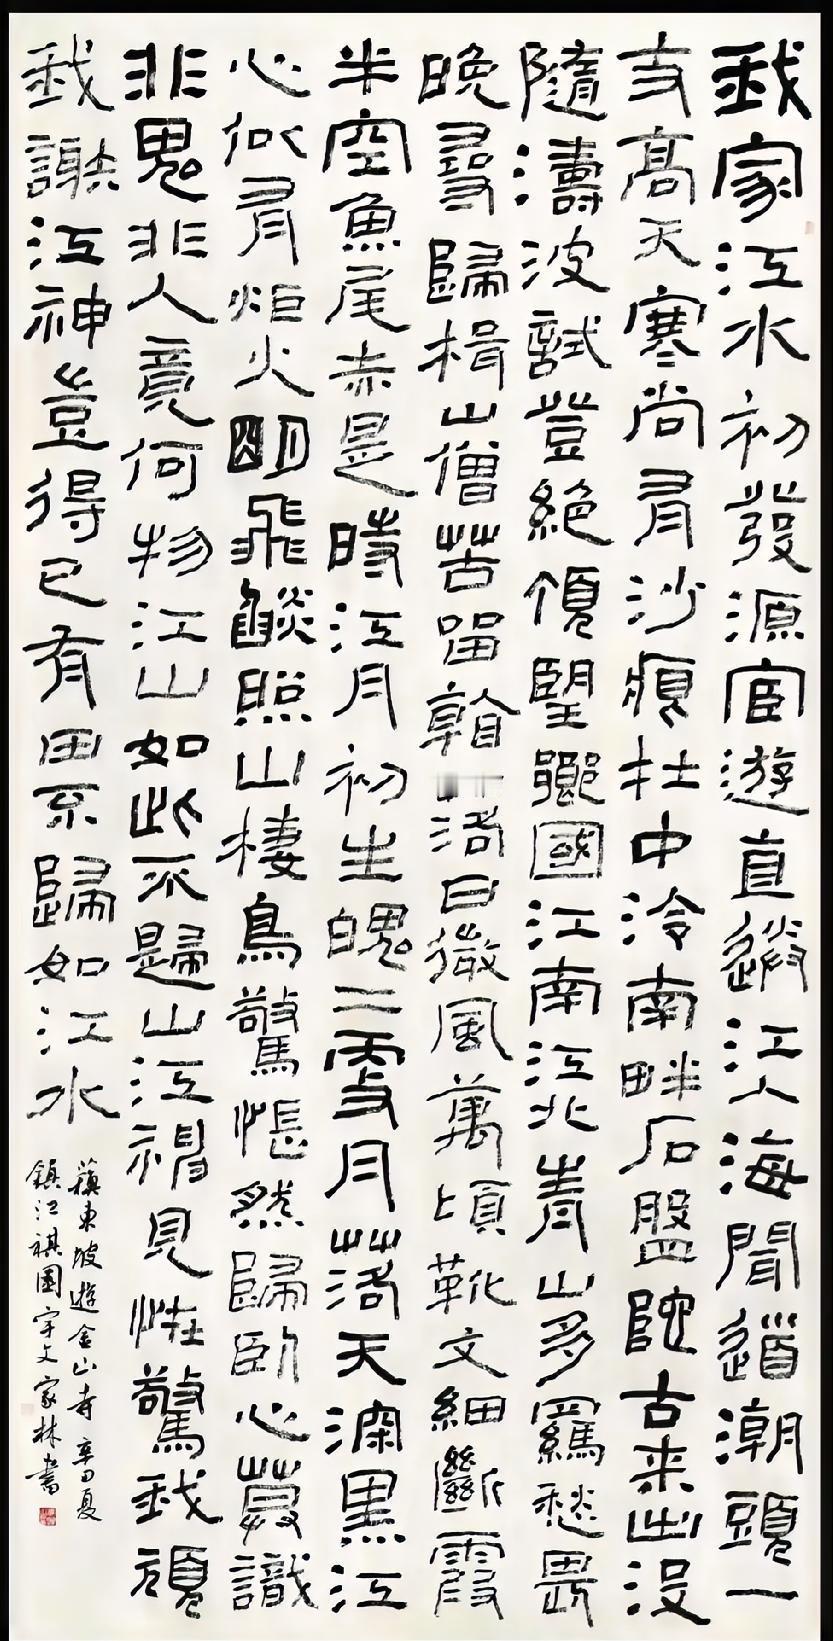 我家江水初發源宦遊直送江入海聞道潮頭一
丈高天寒尚有沙痕在中泠南畔石盤陀古來出沒
隨濤波試登絕頂望鄉國江南江北青山多羈愁畏
晚尋歸楫山僧苦留看落日微風萬頃靴文細斷霞
半空魚尾赤是時江月初生魄二更月落天深黑江
心似有炬火明飛燄照山棲鳥驚悵然歸臥心莫識
非鬼非人竟何物江山如此不歸山江神見怪驚我頑
我謝江神豈得已有田不歸如江水
蘇東坡遊金山寺 辛丑夏
鎮江祺園宇文家林書